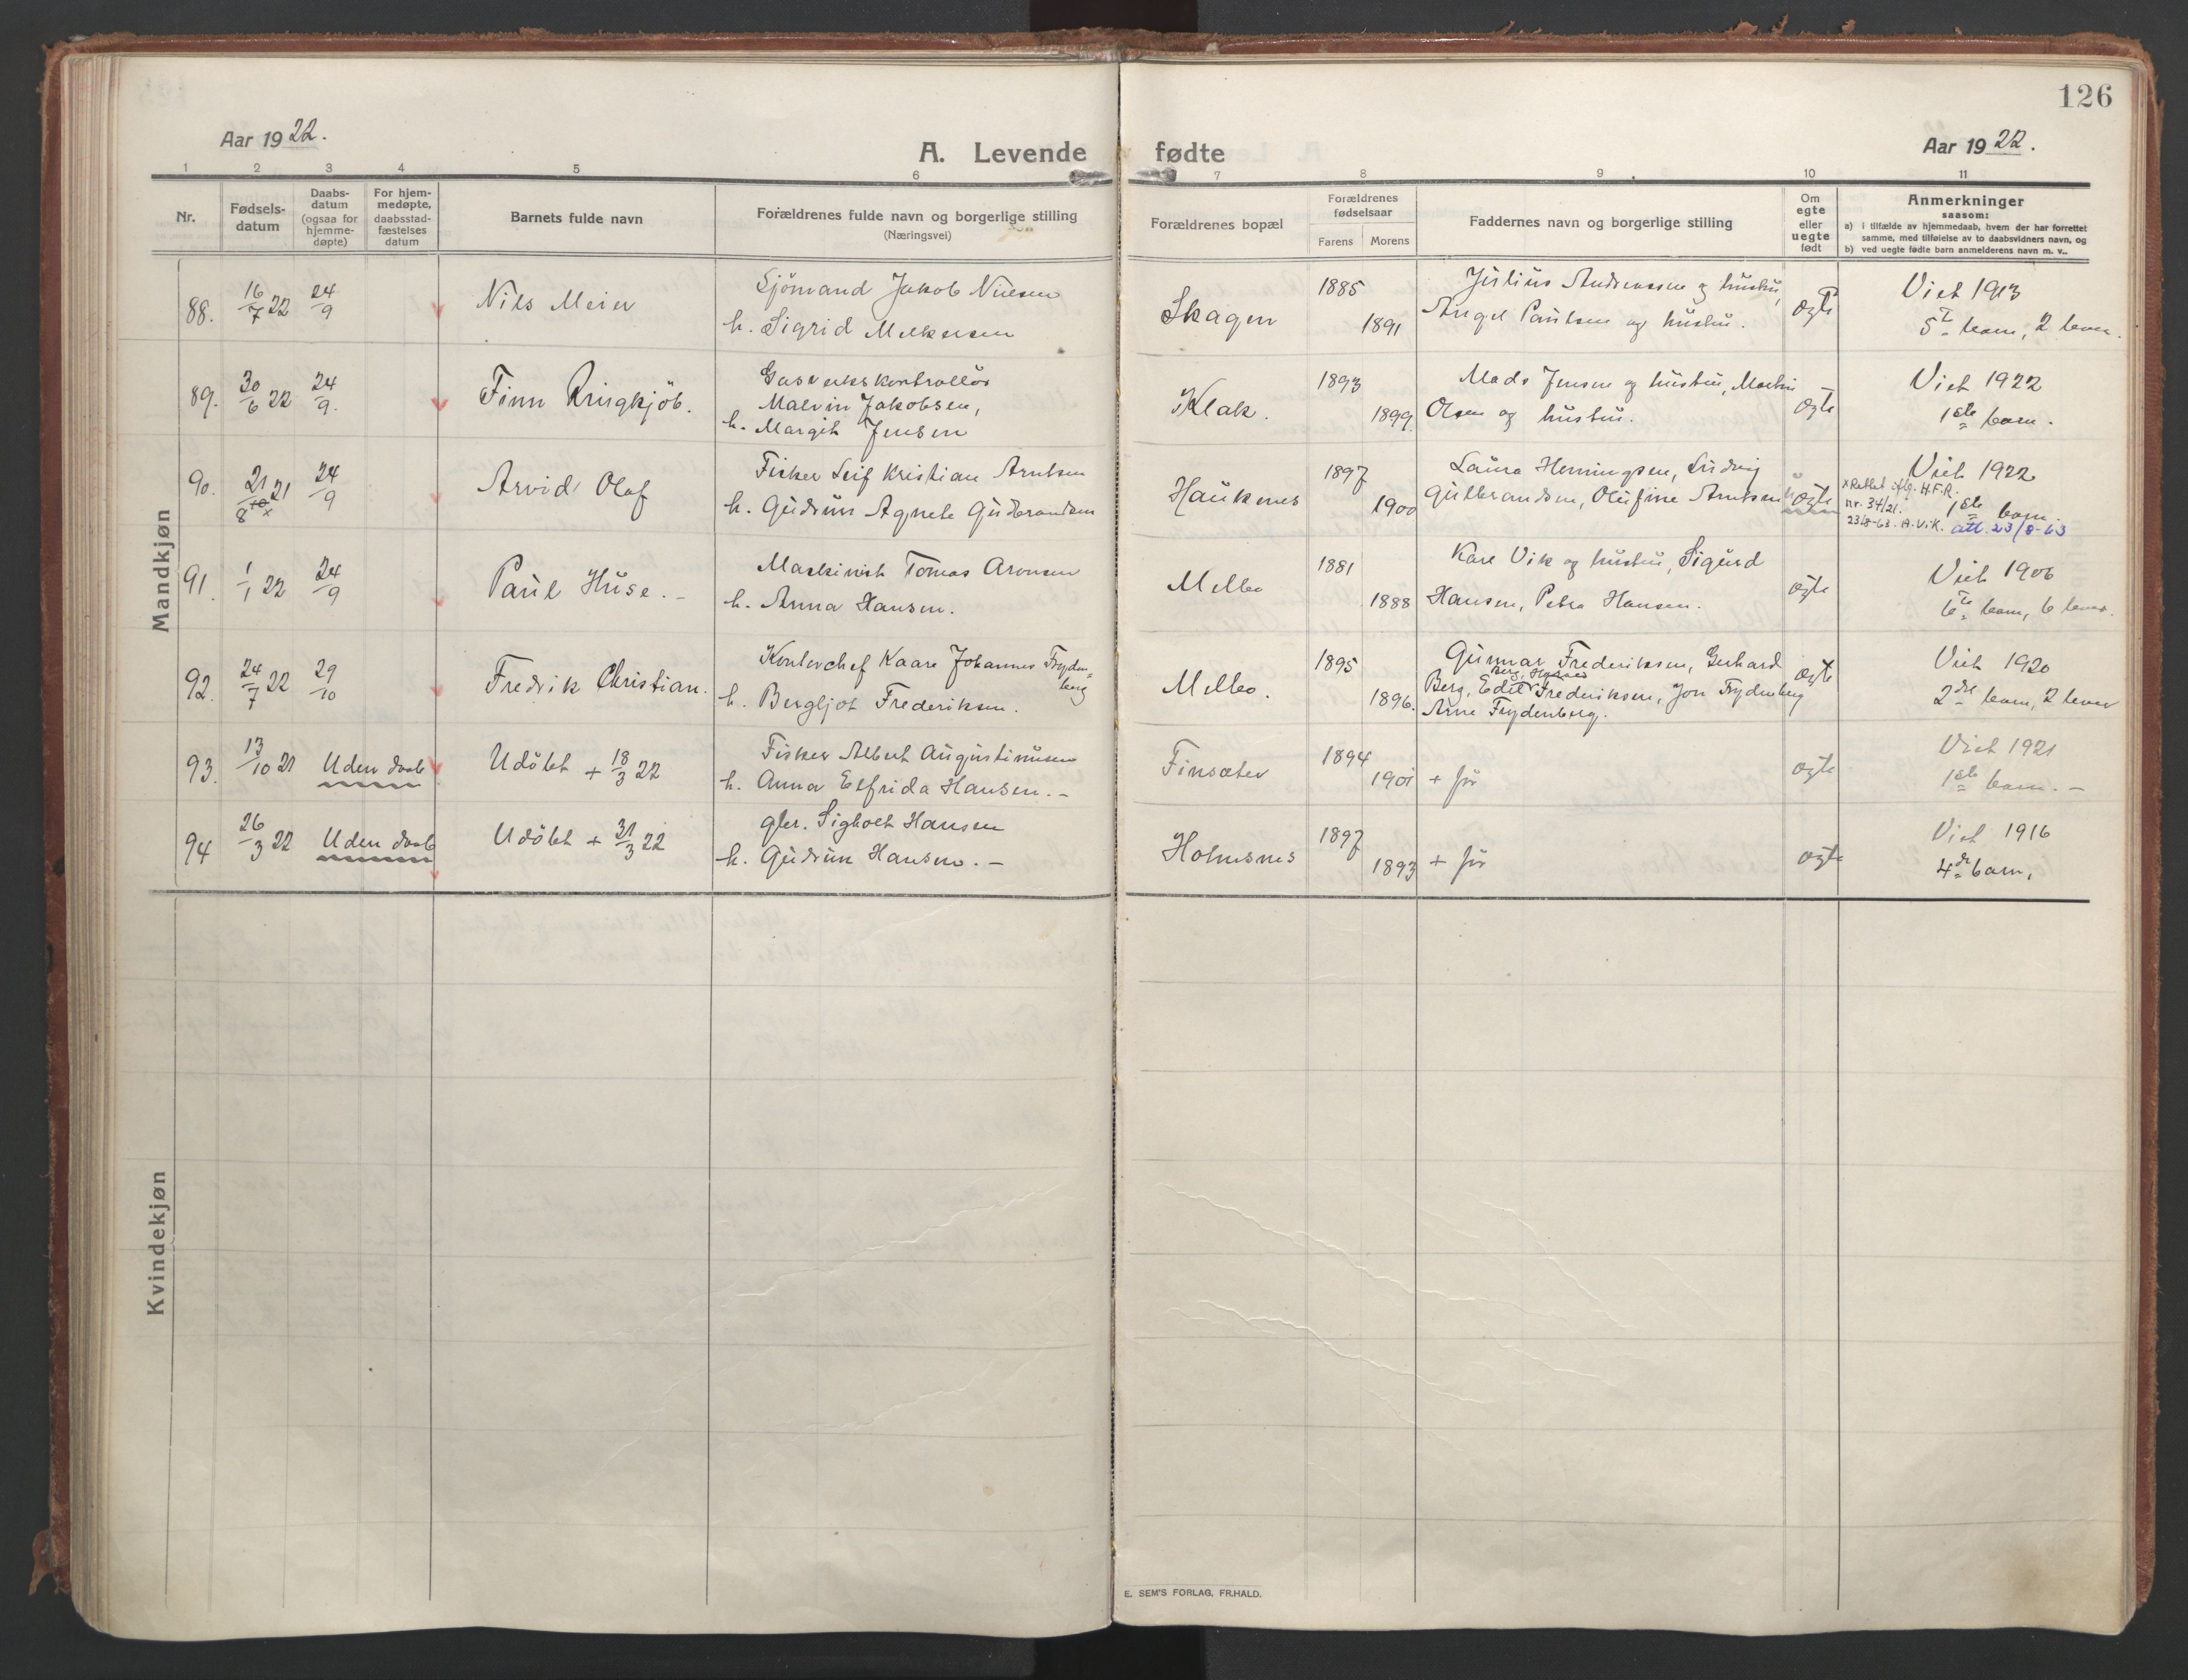 126
Aar 1922.
A. Levende fødte
Aar 1922.
1 2 3 4 5 6 7 8 9 10 11
Nr.
Fødsels-
datum
Daabs-
datum
(ogsaa for
hjemme-
døpte)
For hjem-
medøpte,
daabsstad-
fæstelses
datum
Barnets fulde navn
Forældrenes fulde navn og borgerlige stilling
(Næringsvei)
Forældrenes bopæl
Forældrenes
fødselsaar
Farens Morens
Faddernes navn og borgerlige stilling
Om
egte
eller
uegte
født
Anmerkninger
saasom:
a) i tilfælde av hjemmedaab, hvem der har forrettet
samme, med tilføielse av to daabsvidners navn, og
b) ved uegte fødte barn anmelderens navn m. v..
Mandkjøn
88. 16/7 22 24/9 Nils Meier
Sjömand Jakob Nielsen
h. Sigrid Melkersen
Skagen 1885 1891
Julius Andreassen og hustru,
Angel Paulsen og hustru.
ægte
Viet 1913
5te barn, 2 lever.
89. 30/6 22 24/9. Finn Ringkjöb.
Gasverkskontrollör
Malvin Jakobsen,
h. Margit Jensen
Klak. 1893 1899.
Mads Jensen og hustru, Martin
Olsen og hustru.
ægte
Viet 1922
1ste barn.
90. 21/10 21 8 x 24/9 Arvid Olaf
Fisker Leif Kristian Arntsen
h. Gudrun Agnete Gulbrandsen
Hauknes 1897 1900
Laura Henningsen, Ludvig
Gulbrandsen, Olufine Arntsen
ægte
Viet 1922
x Rettet iflg. H.F.R.
nr. 34/21. 1ste barn.
23/8-63. A.Vik. att. 23/8-63
91. 1/1 22 24/9 Paul Huse. -
Maskinist Tomas Aronsen
h. Anna Hansen.
Melbo 1881 1888
Kare Vik og hustru, Sigurd
Hansen, Petra Hansen.
ægte
Viet 1906
6te barn, 6 lever.
92. 24/7 22 29/10 Fredrik Christian.
Kontorchef Kaare Johannes Fryden-
berg
h. Bergljot Frederiksen.
Melbo. 1895 1896.
Gunnar Frederiksen, Gerhard
Berg, Edel Frederiksen, Jon Frydenberg
Arne Frydenberg.
ægte
Viet 1920
2det barn, 2 lever
93. 13/10 21 Uden daab Udöbt + 18/3 22
Fisker Albert Augustinusen
h. Anna Elfrida Hansen. -
Finsæter 1894 1901 + för
ægte
Viet 1921
1ste barn. -
94 26/3 22 Uden daab Udöbt + 31/3 22
gbr. Sigholt Hansen
h. Gudrun Hansen. -
Holmsnes 1897 1893 + för
ægte
Viet 1916
4de barn,
Kvindekjøn
E. SEM'S FORLAG, FR.HALD.